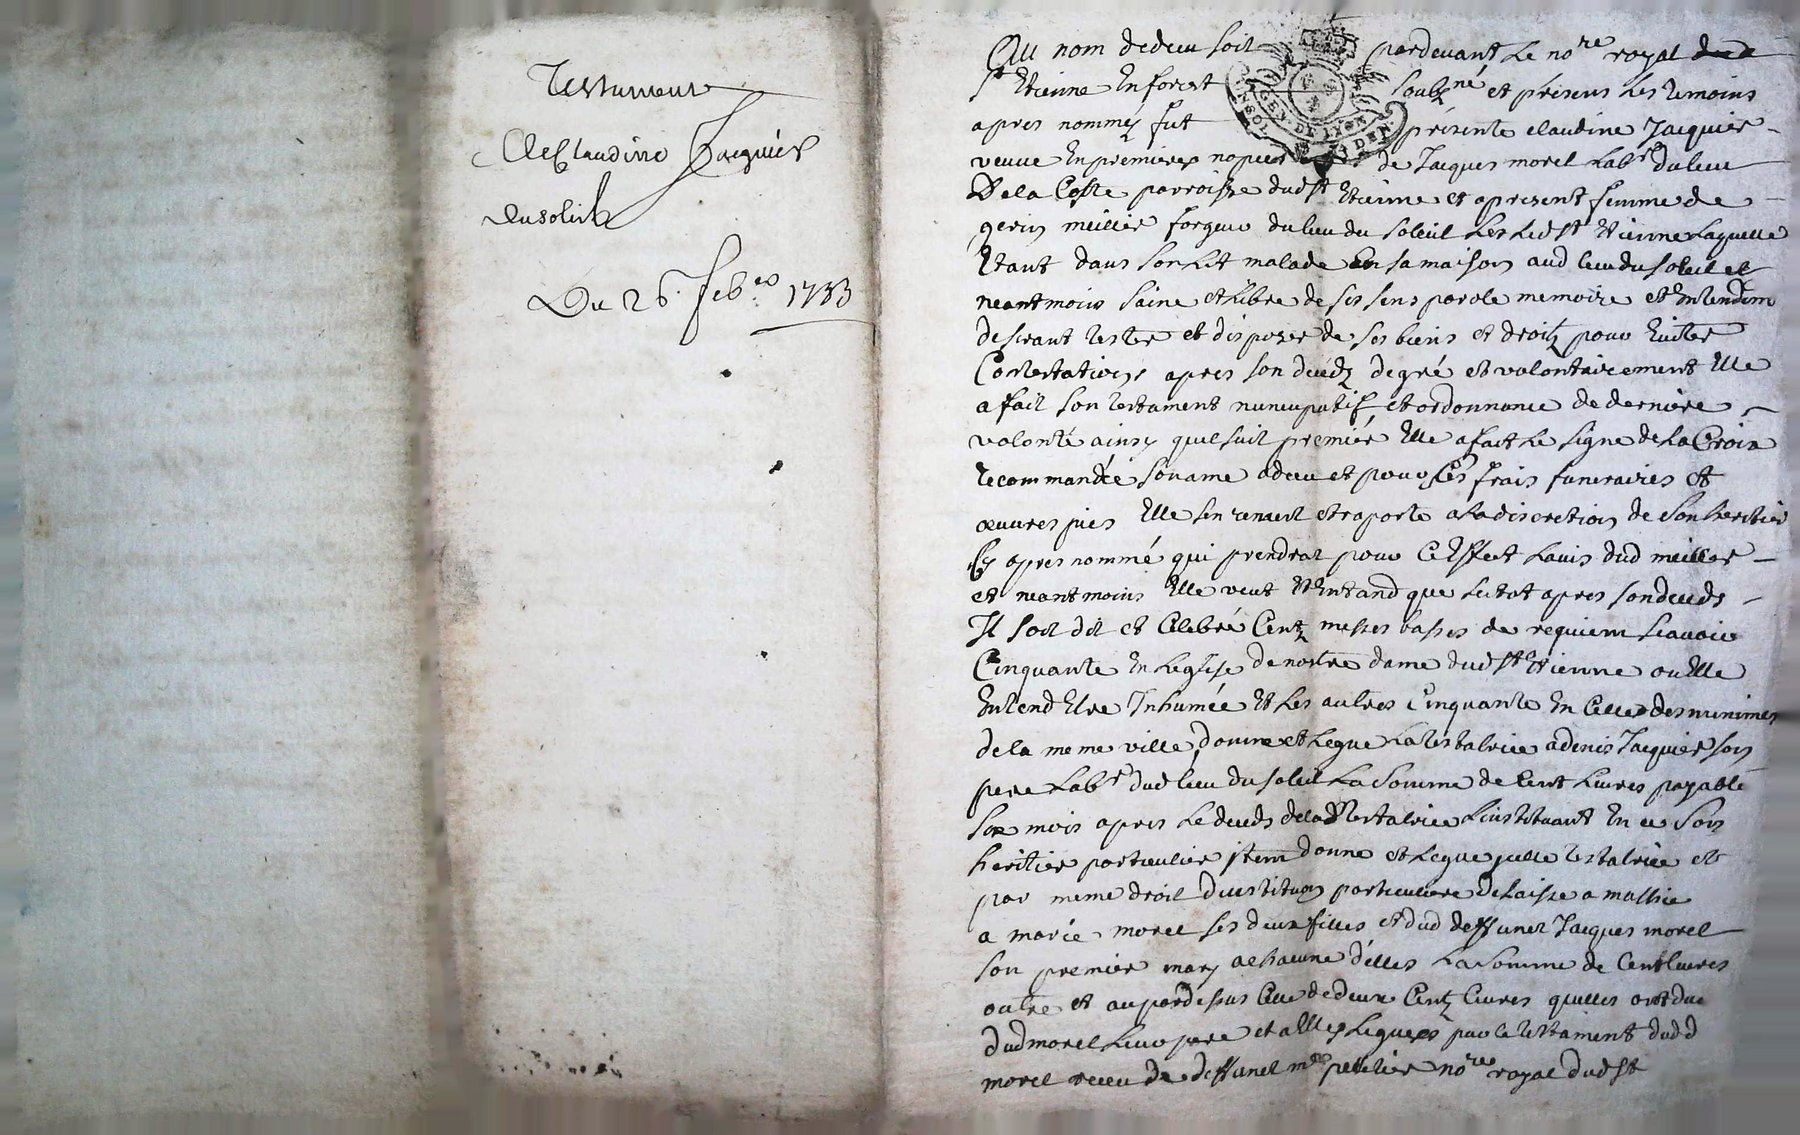 Testament
de Claudine Jacquier
du soleil
Du 26. feb.eo 1733
Au nom de dieu soit pardevant le no.re royal
St Etienne En forest soubz.né et présens les temoins
apres nommez fut présente claudine Jacquier
veuve En premieres nopces de Jacques morel Lab.r du lieu
De la Coste parroisse dud St Etienne et apresent femme de
gerin meilier forgeur du lieu du soleil Les led St Etienne Laquelle
Etant dans son Lit malade En sa maison aud lieu du soleil et
neantmoins saine et libre de ses sens parole memoire et Entendem
desirant tester et disposer de ses biens et droitz pour Euiter
Contestations apres son decédz de gré et volontairement Elle
a fait son testament nuncupatif et ordonnance de derniere
volonté ainsy quil suit premiér Elle a fait le signe de la Croix
recommandée son ame a dieu et pour ses frais funeraires et
œuvres pies Elle sen remest et raporte a la discretion de son heritier
Cy apres nommé qui prendrat pour C Effect Lavis dud meilier
et neantmoins Elle veut Et Entand que Lutot apres son deceds
Il soit dit et Celebré Centz messes basses de requiem scavoir
Cinquante En Leglise de nostre dame dud St Etienne ou Elle
Entend Etre Inhumée Et Les autres Cinquante En Celle des minimes
de la meme ville, donne et Legue La testatrice a denis Jacquier son
pere Lab.r dud lieu du soleil La Somme de Cent Liures payable
six mois apres Le deceds de lad testatrice Linstituant En ce Son
heritier particulier jtem donne et Legue jcelle testatrice et
par meme droit dinstituon particuliere delaisse a mathie
a marie morel ses deux filles et dud deffunct Jacques morel
son premier mary a chacune delles La somme de Cent liures
outre et au par dessus Celle de deux Centz liures quelles ont due
dud morel Leur pere et a Elles Leguees par le testament dudd
morel receu de deffunct me pelletier no.re royal dud St